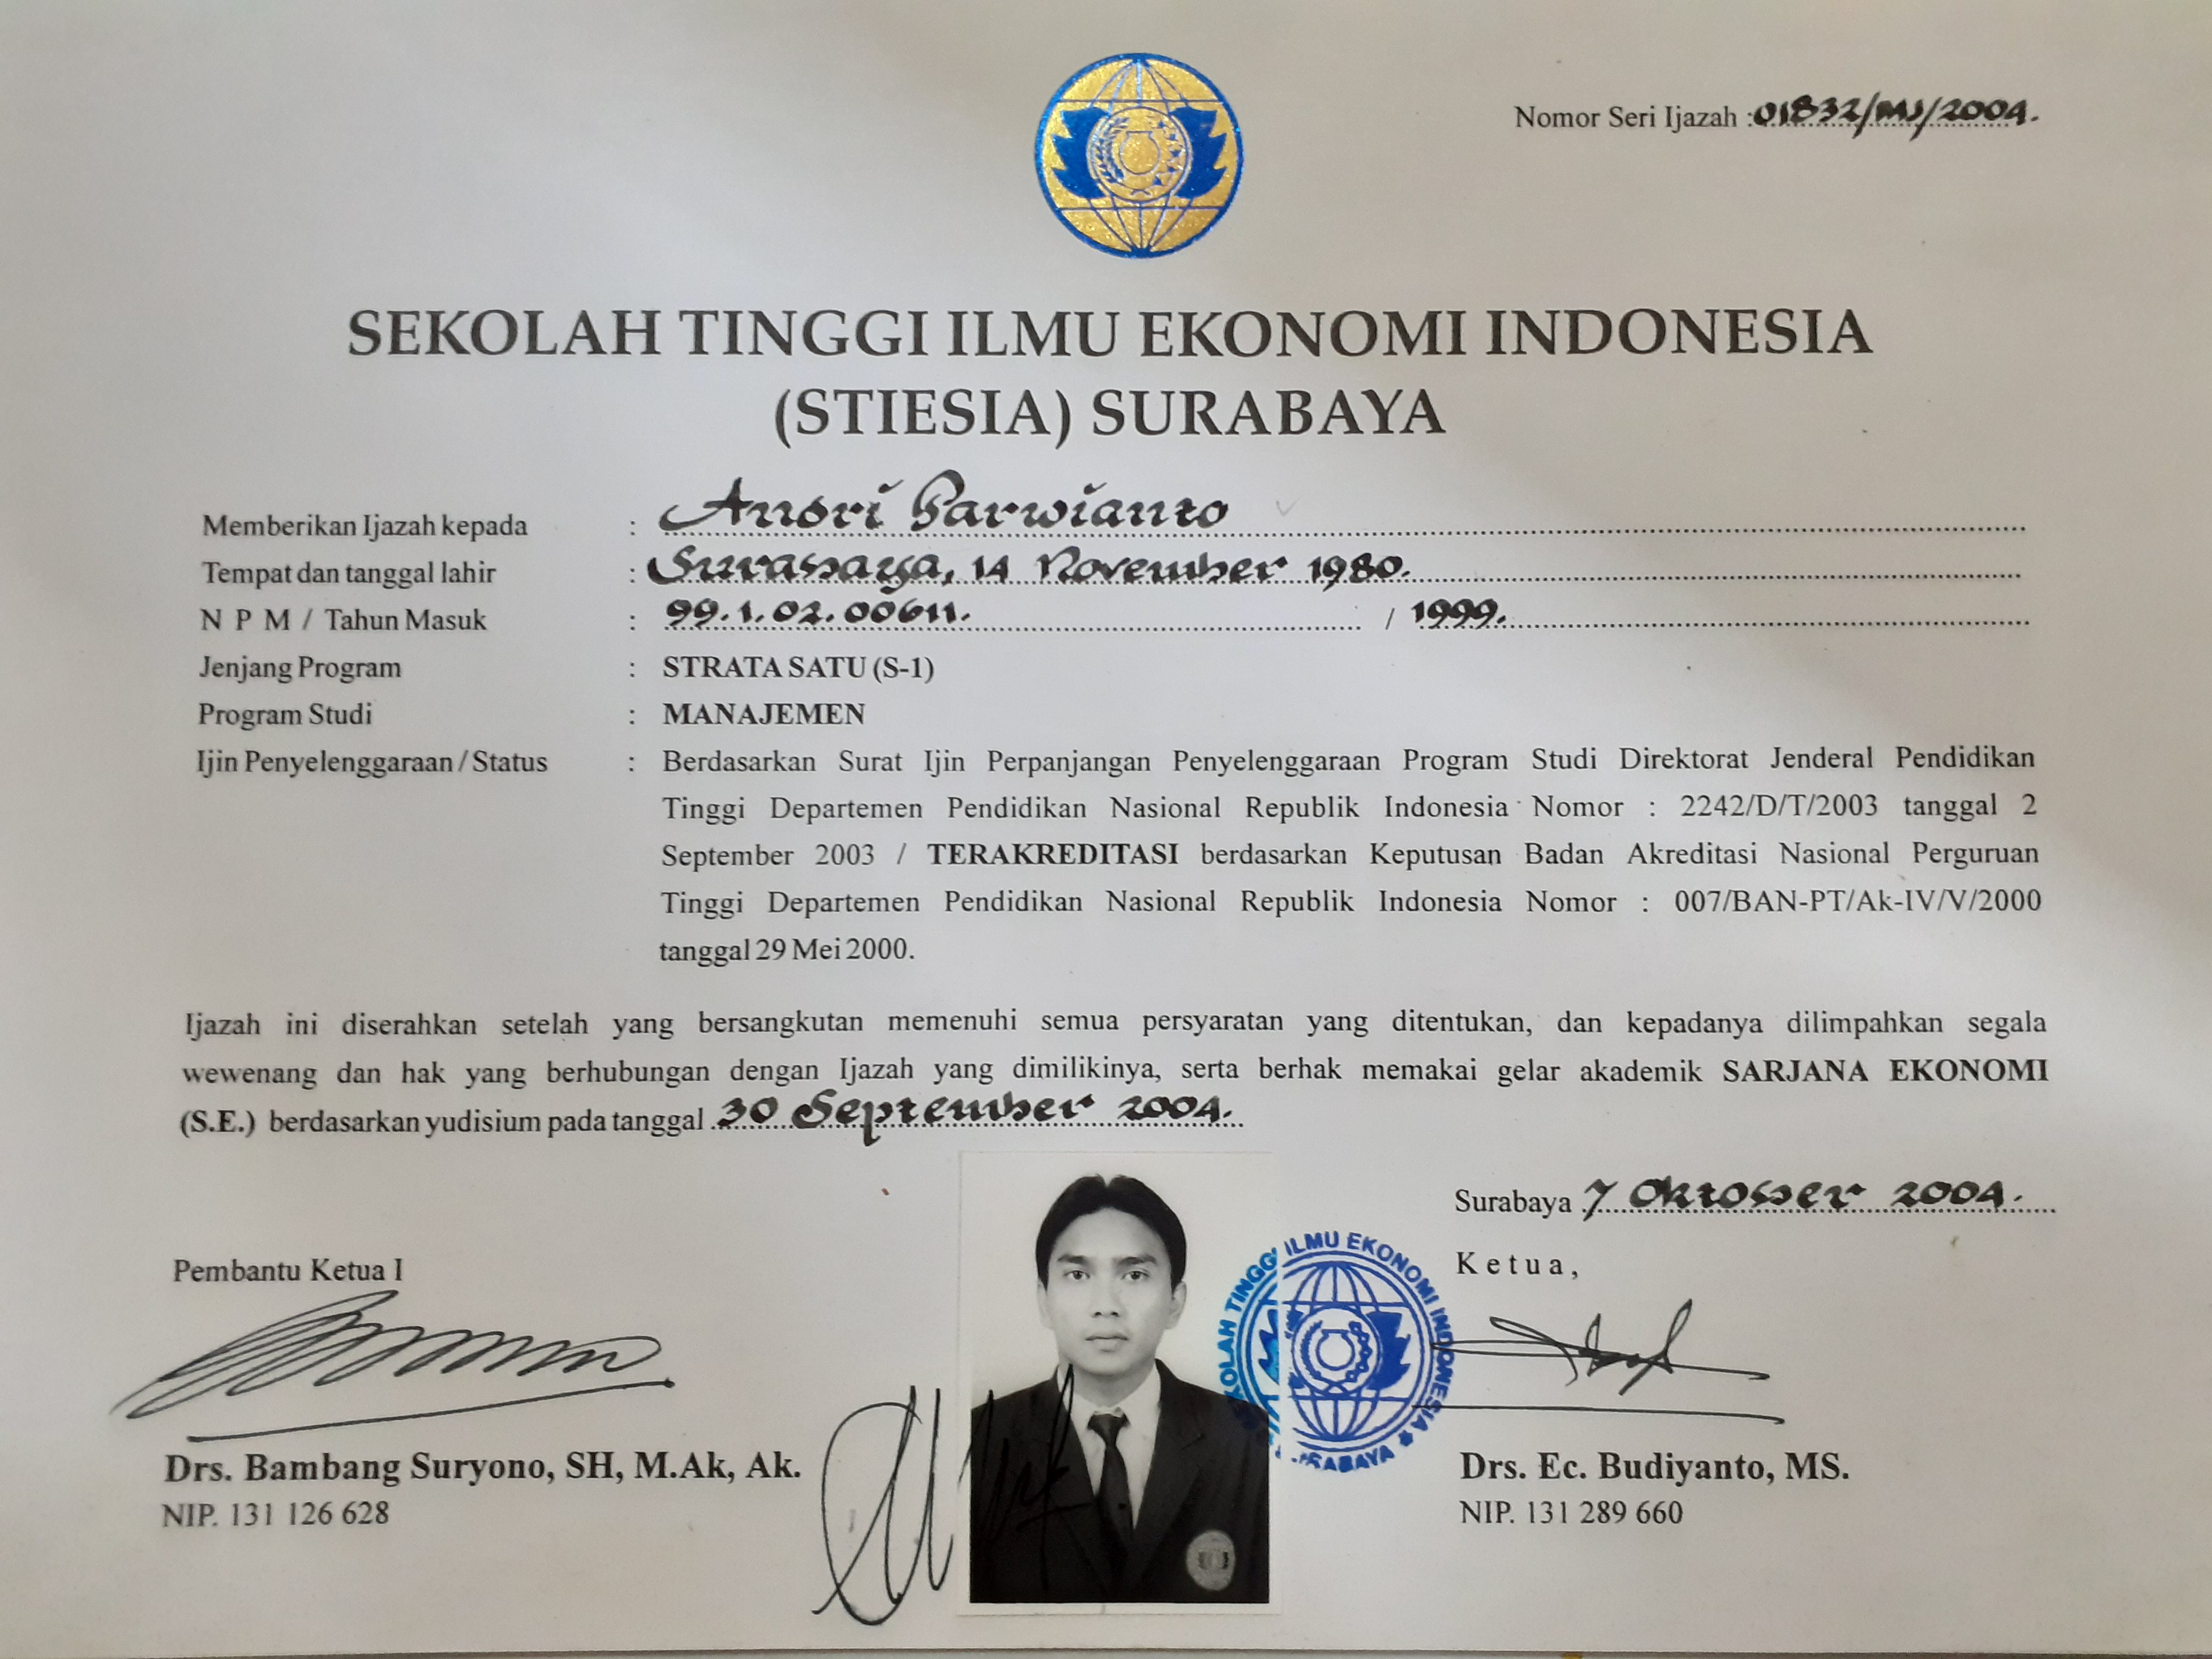 Nomor Seri Ijazah : 01832/MJ/2004.
SEKOLAH TINGGI ILMU EKONOMI INDONESIA
(STIESIA) SURABAYA
Memberikan Ijazah kepada : Ansori Parwianto
Tempat dan tanggal lahir : Surabaya, 14 November 1980.
N P M / Tahun Masuk : / 1999.
Jenjang Program : STRATA SATU (S-1)
Program Studi : MANAJEMEN
Ijin Penyelenggaraan / Status : Berdasarkan Surat Ijin Perpanjangan Penyelenggaraan Program Studi Direktorat Jenderal Pendidikan
Tinggi Departemen Pendidikan Nasional Republik Indonesia Nomor : 2242/D/T/2003 tanggal 2
September 2003 / TERAKREDITASI berdasarkan Keputusan Badan Akreditasi Nasional Perguruan
Tinggi Departemen Pendidikan Nasional Republik Indonesia Nomor : 007/BAN-PT/Ak-IV/V/2000
tanggal 29 Mei 2000.
Ijazah ini diserahkan setelah yang bersangkutan memenuhi semua persyaratan yang ditentukan, dan kepadanya dilimpahkan segala
wewenang dan hak yang berhubungan dengan Ijazah yang dimilikinya, serta berhak memakai gelar akademik SARJANA EKONOMI
(S.E.) berdasarkan yudisium pada tanggal 30 September 2004.
Surabaya, 7 Oktober 2004.
Pembantu Ketua I
K e t u a ,
KOLAH TINGGI ILMU EKONOMI INDONESIA
RABAYA
Drs. Bambang Suryono, SH, M.Ak, Ak.
NIP. 131 126 628
Drs. Ec. Budiyanto, MS.
NIP. 131 289 660